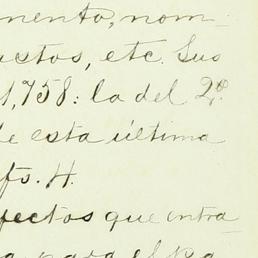 mento, nom-
uctos, etc. Sus
1,758: la del 2º
de esta última
fs. H.
fectos que entra
para el Pa